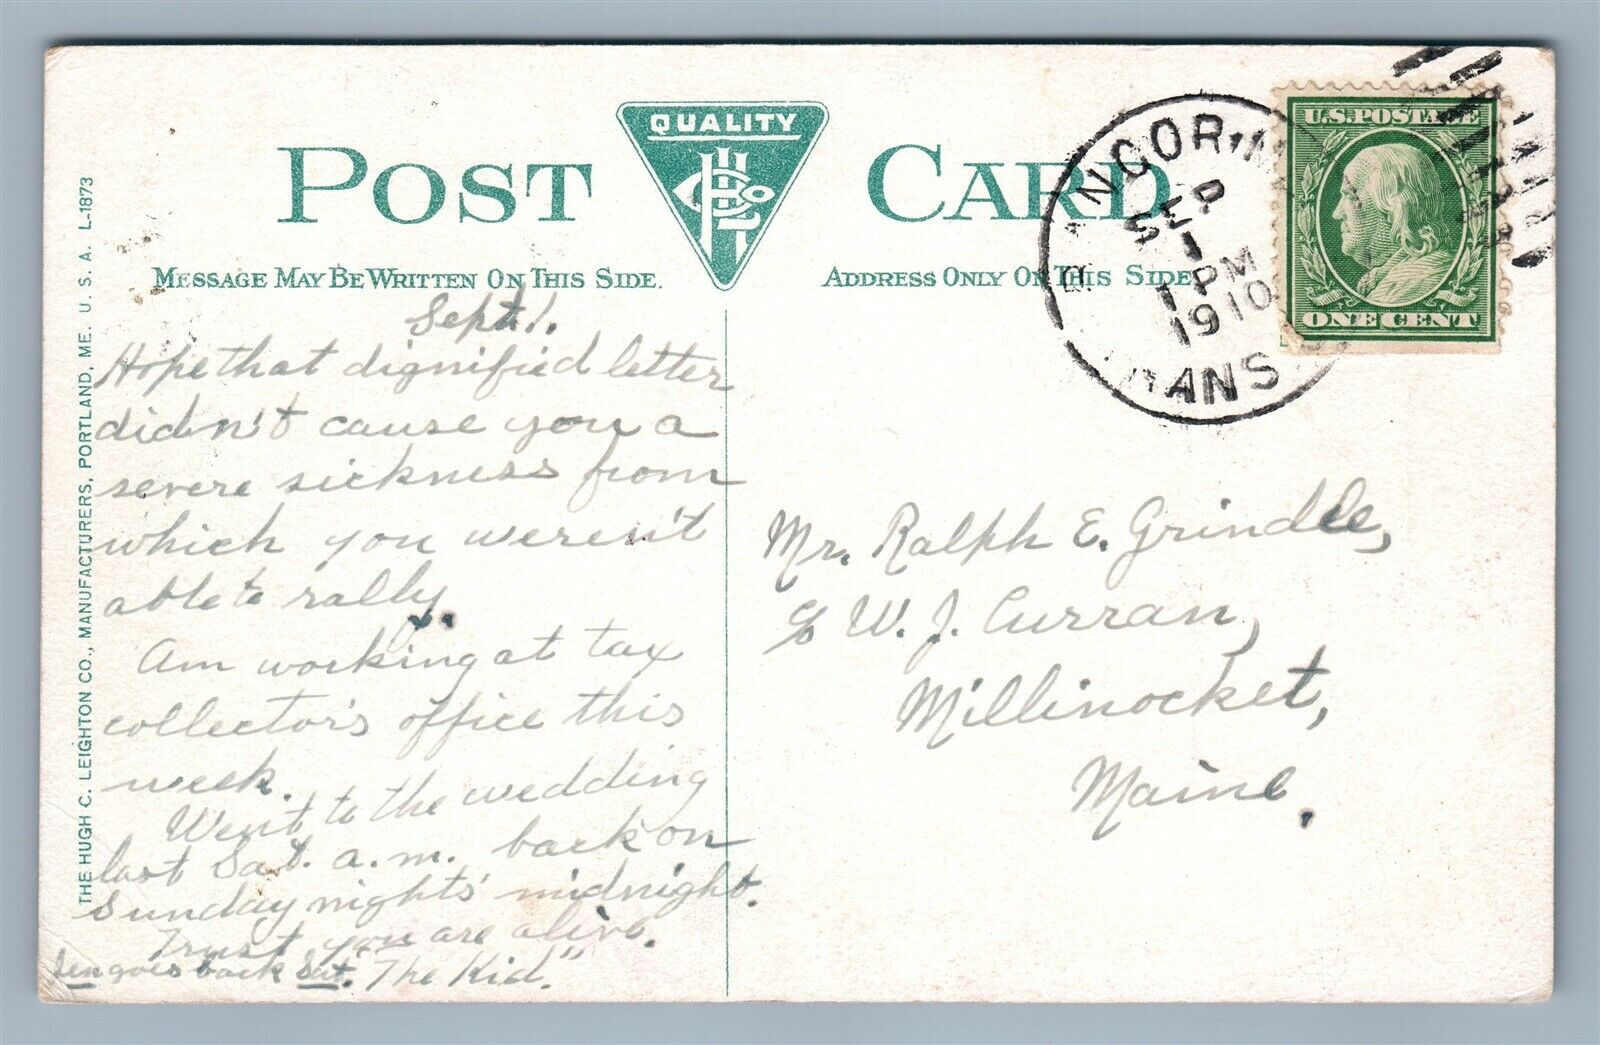 POST CARD
QUALITY
HCL Co
MESSAGE MAY BE WRITTEN ON THIS SIDE.
ADDRESS ONLY ON THIS SIDE
THE HUGH C. LEIGHTON CO., MANUFACTURERS, PORTLAND, ME. U. S. A. L-1873
BANGOR, M
SEP
1
1 PM
1910
TRANS
U.S. POSTAGE
ONE CENT
Sept. 1.
Hope that dignified letter
didn't cause you a
severe sickness from
which you weren't
able to rally.
Am working at tax
collector's office this
week.
Went to the wedding
last Sat. a.m. back on
Sunday nights' midnight.
Trust you are alive.
goes back Sat. "The Kid"
Mr. Ralph E. Grindle,
c/o W. J. Curran,
Millinocket,
Maine.